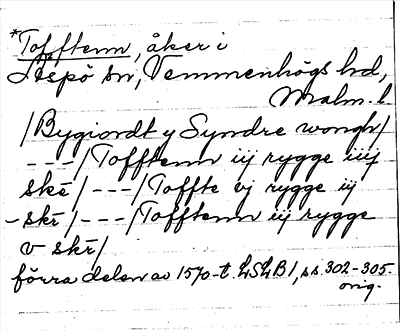 *Tofftenn, åker i
Äspö sn, Vemmenhögs hd,
Malm. l.
/Bygiordt y Syndre wongh/
---/Tofftenn iij rygge iiij
skr̄/---/Toffte vj rygge iij
-skr̄/---/Tofftenn iij rygge
v skr̄/
förra delen av 1570-t. LSLB 1, ss. 302-305.
orig.